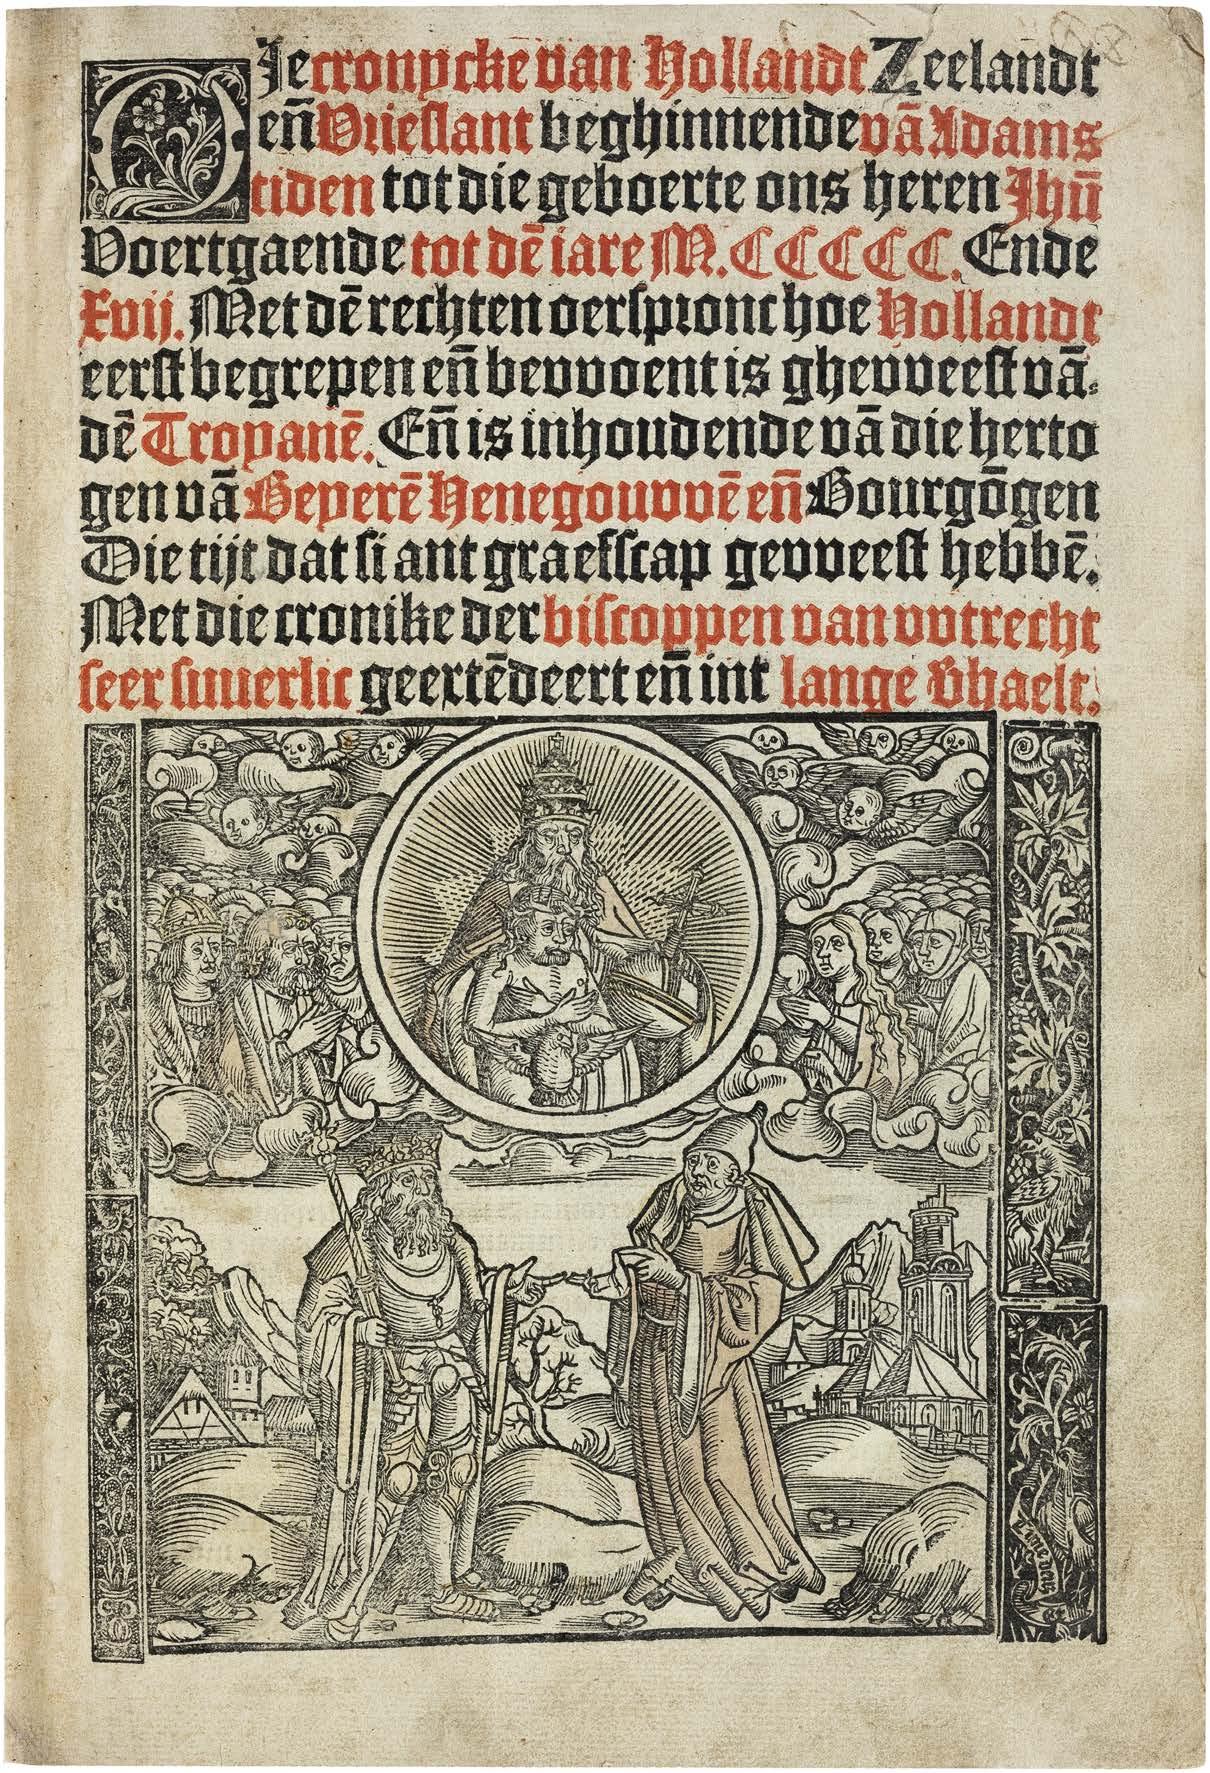 DJe cronycke van Hollandt Zeelandt
eñ Vrieslant beghinnende vā Adams
tiden tot die geboerte ons heren Jhū
Voertgaende tot dē iare M. CCCCC. Ende
Xvij. Met dē rechten oerspronc hoe Hollandt
eerst begrepen eñ bevvoent is ghevveest vā
dē Troyanē. Eñ is inhoudende vā die herto
gen vā Beyerē Henegouvvē eñ Bourgōgen
Die tijt dat si ant graefscap gevveest hebbē.
Met die cronike der biscoppen van vvtrecht
seer suuerlic geextēdeert eñ int lange vhaelt.